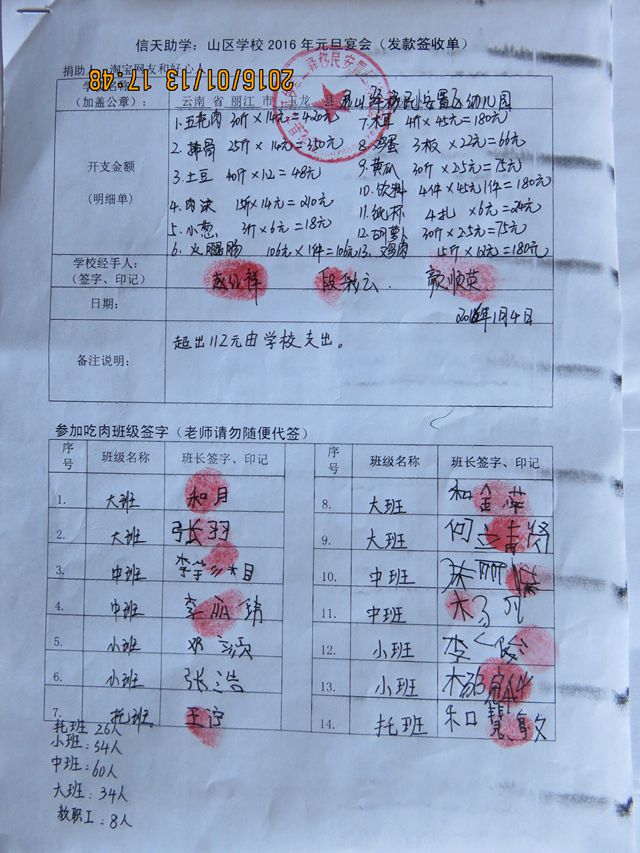 信天助学：山区学校 2016 年元旦宴会（发款签收单）
捐助人：淘宝网友和好心人
2016/01/13 17:48
（加盖公章）： 云南 省 丽江 市 玉龙 县 移民安置区幼儿园
开支金额
（明细单）
1.五花肉 30斤×14元=420元 7.木耳 4斤×45元=180元
2.排骨 25斤×14元=350元 8.鸡蛋 3板×22元=66元
3.土豆 40斤×1.2=48元 9.黄瓜 30斤×2.5元=75元
4.肉沫 15斤×14元=210元 10.饮料 4件×45元1件=180元
5.小葱 3斤×6元=18元 11.纸杯 4扎×6元=24元
6.火腿肠 106元×1件=106元 12.胡萝卜 30斤×2.5元=75元
13.鸡肉 15斤×12元=180元
学校经手人：
（签字、印记）
日期： 2016年1月4日
备注说明： 超出112元由学校支出。
参加吃肉班级签字（老师请勿随便代签）
序号 班级名称 班长签字、印记 序号 班级名称 班长签字、印记
1. 大班 和月 8. 大班 和金
2. 大班 张羽 9. 大班 何
3. 中班 李 10. 中班
4. 中班 李 玮 11. 中班
5. 小班 邓 12. 小班 李 俊
6. 小班 张浩 13. 小班 杨
7. 托班 王 14. 托班 和
托班 26人
小班：54人
中班：60人
大班：34人
教职工：8人